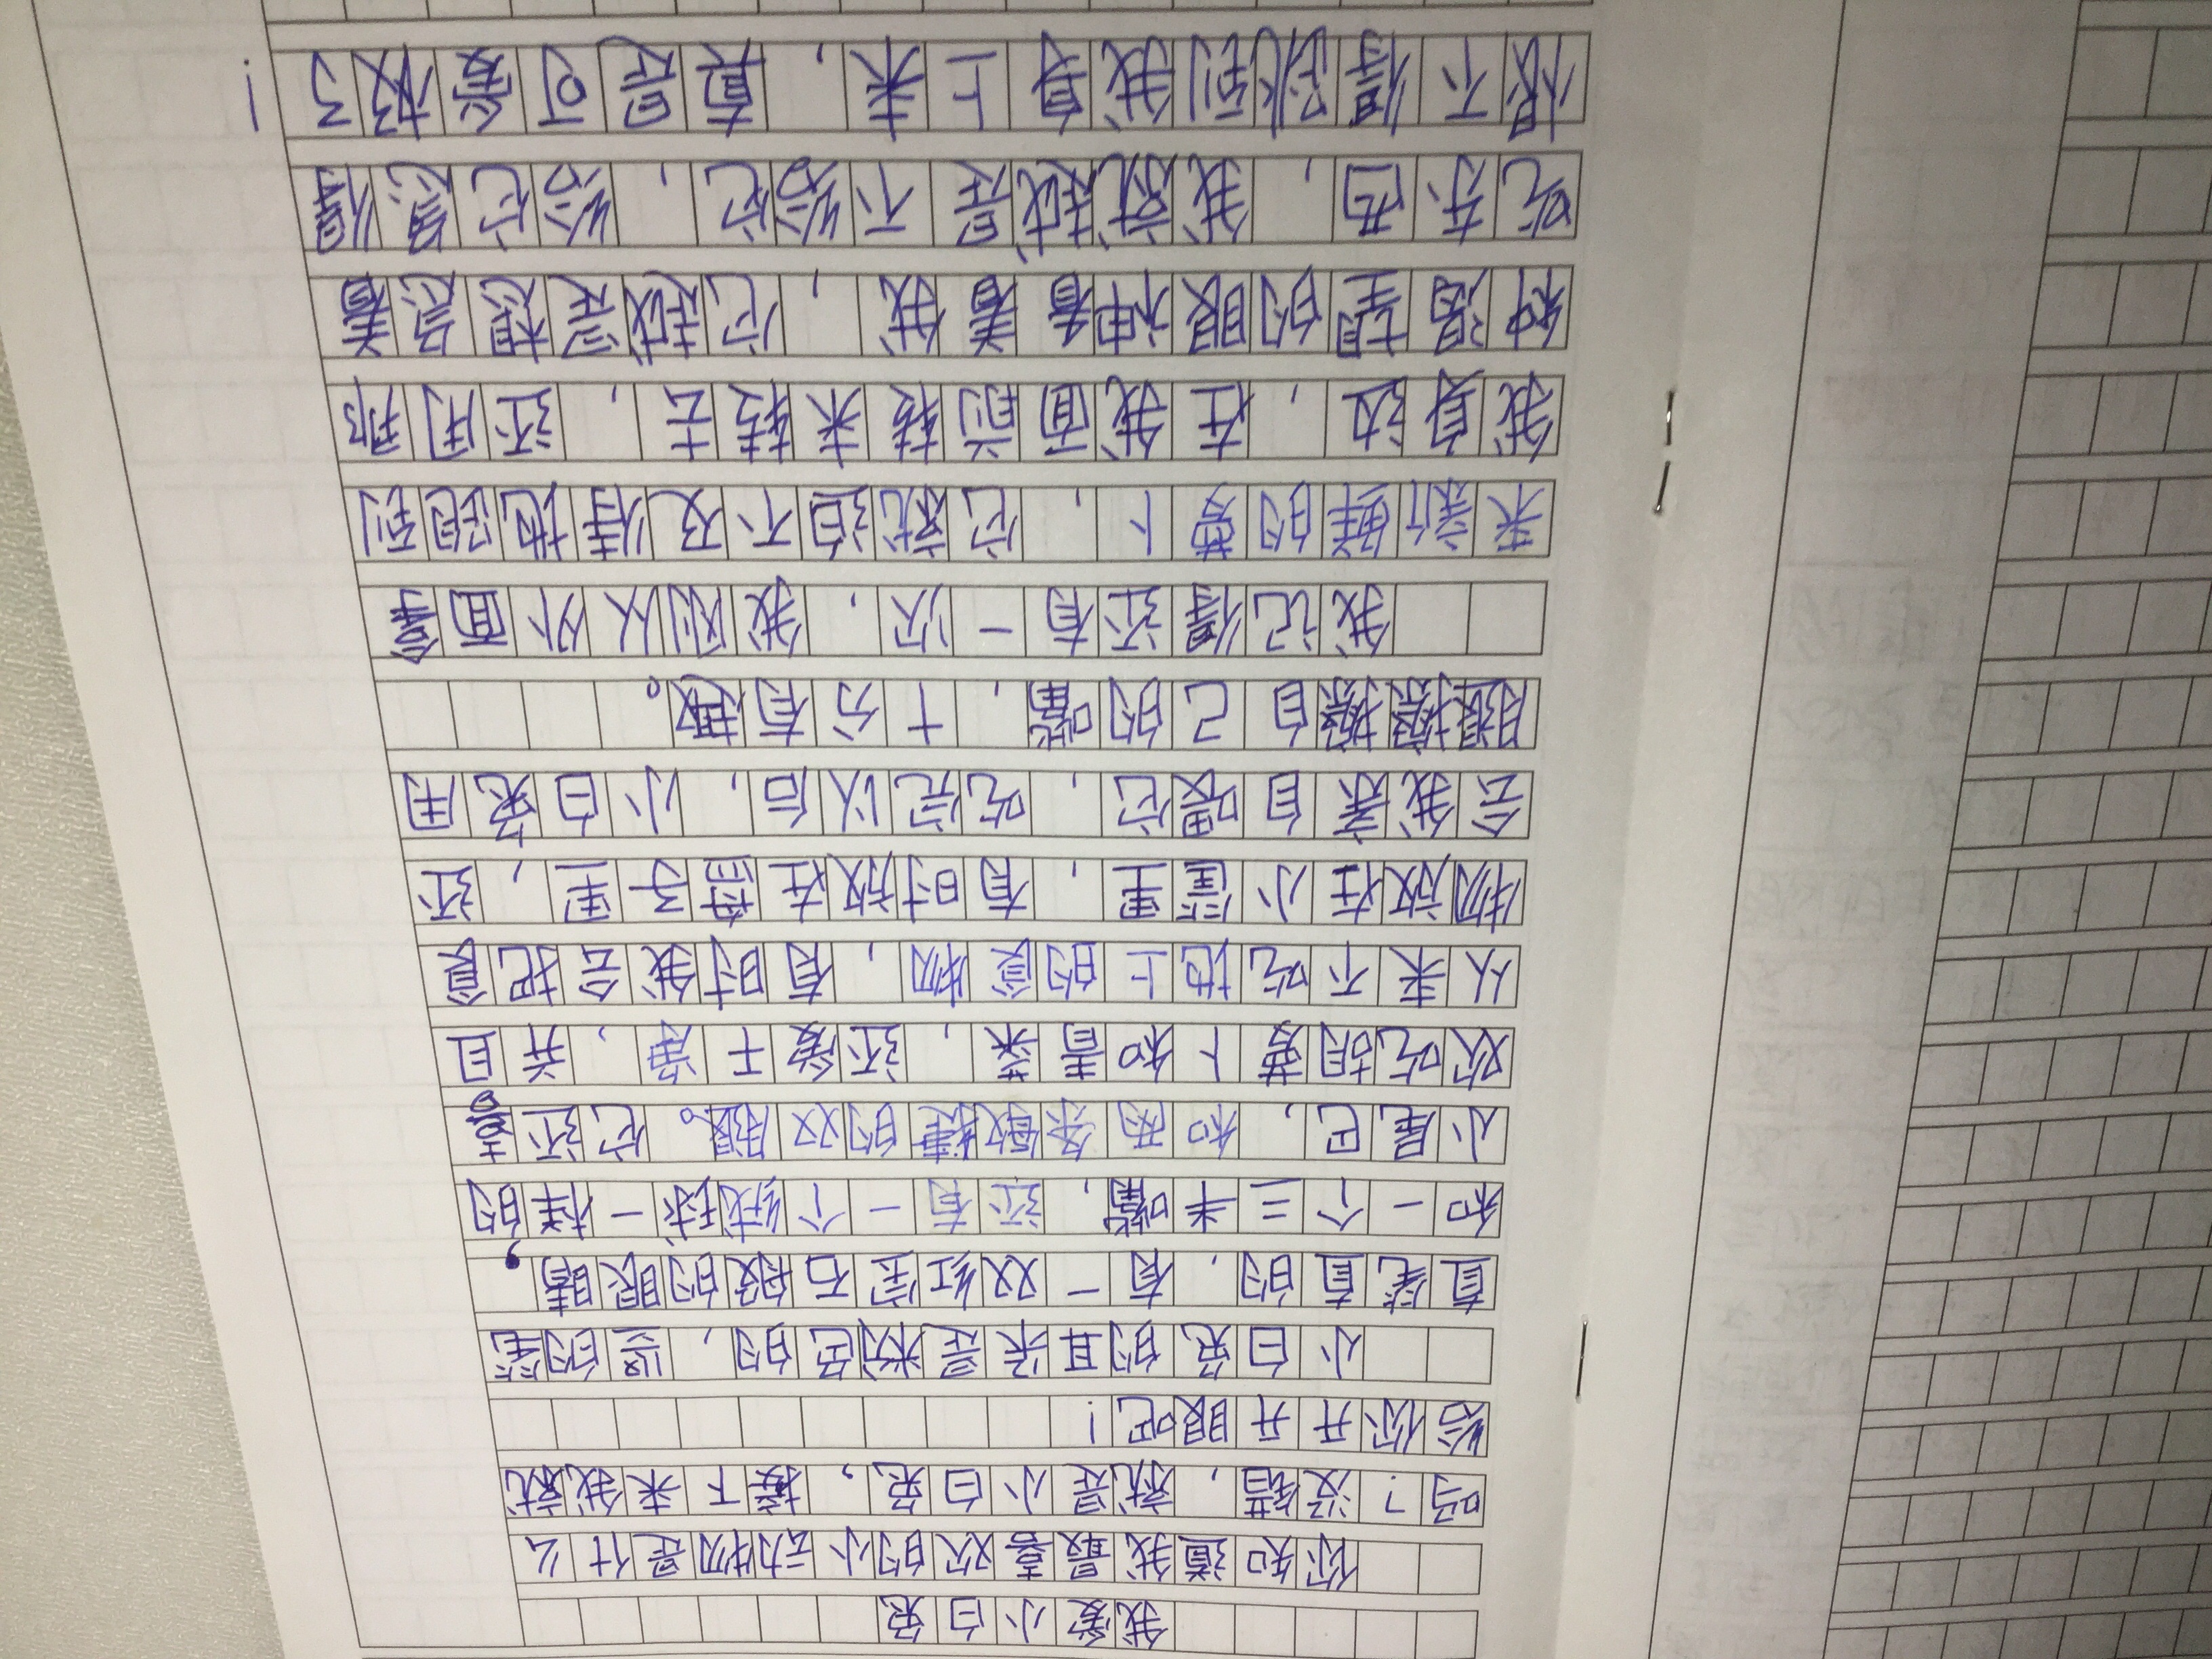 我爱小白兔
你知道我最喜欢的小动物是什么
吗?没错,就是小白兔,接下来我就
给你开开眼吧!
小白兔的耳朵是粉色的,竖的笔
直笔直的,有一双红宝石般的眼睛,
和一个三半嘴,还有一个绒球一样的
小尾巴,和两条敏捷的双腿。它还喜
欢吃胡萝卜和青菜,还爱干净,并且
从来不吃地上的食物,有时我会把食
物放在小筐里,有时放在筛子里,还
会我亲自喂它,吃完以后,小白兔用
腿擦擦自己的嘴,十分有趣。
我记得还有一次,我刚从外面拿
来新鲜的萝卜,它就迫不及待地跑到
我身边,在我面前转来转去,还用那
种渴望的眼神看着我,它越是想急着
吃东西,我就越是不给它,给它急得
恨不得跳到我身上来,真是可爱极了!